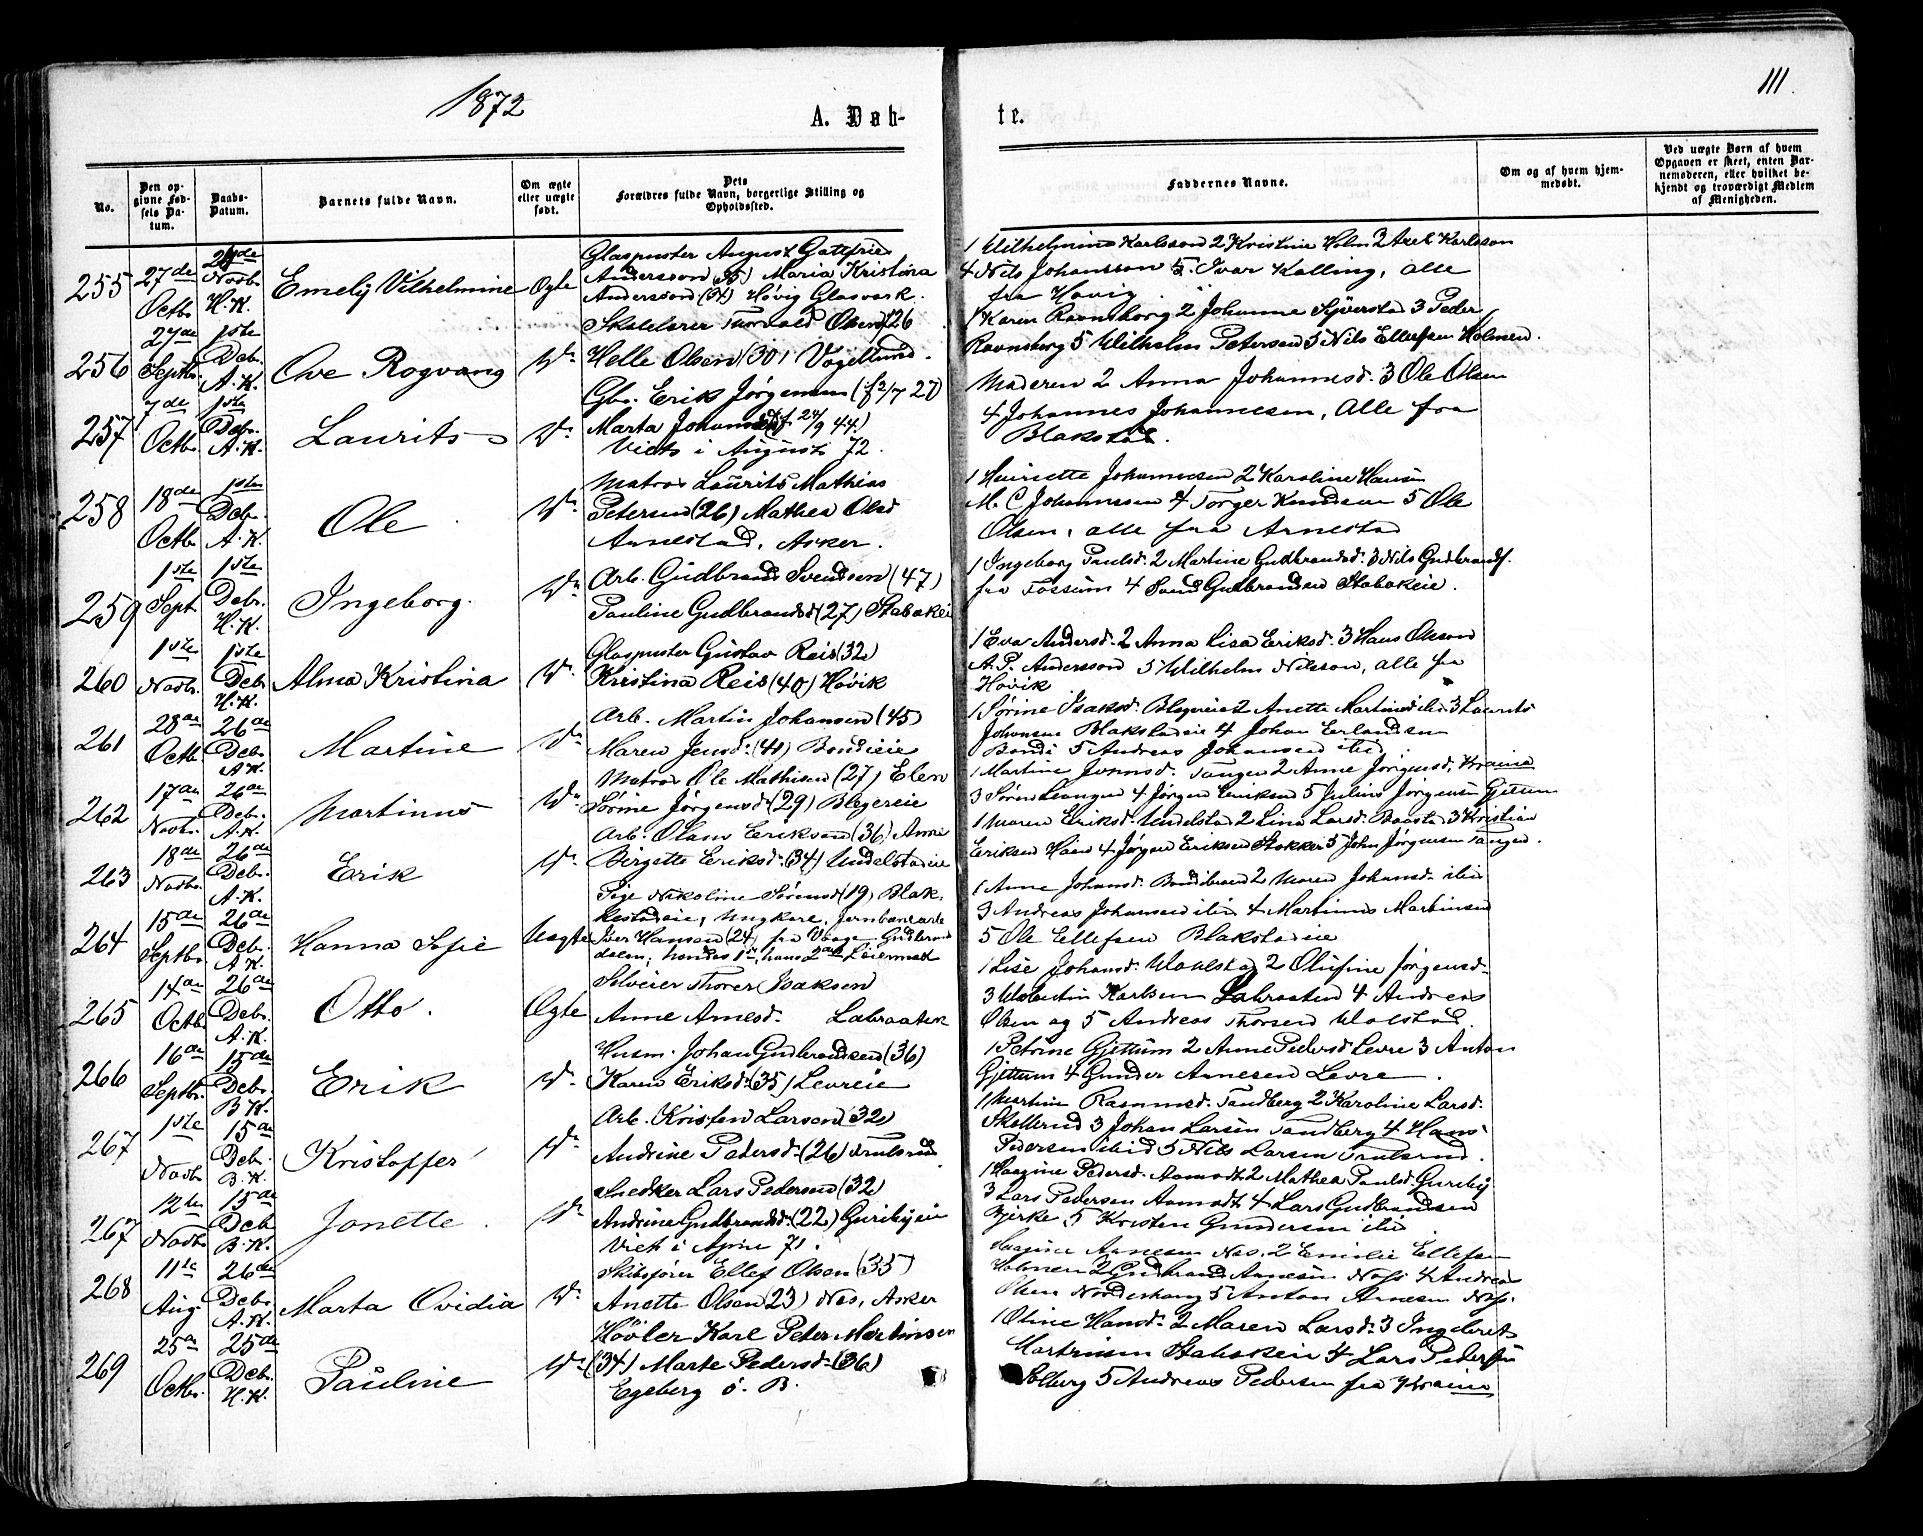 1872
A. Døb-
te.
111.
No.
Den op-
givne Fød-
sels Da-
tum.
Daabs-
Datum.
Barnets fulde Navn.
Om ægte
eller uægte
født.
Dets
Forældres fulde Navn, borgerlige Stilling og
Opholdssted.
Faddernes Navne.
Om og af hvem hjem-
medøbt.
Ved uægte Børn af hvem
Opgaven er skeet, enten Bar-
nemoderen, eller hvilket be-
kjendt og troværdigt Medlem
af Menigheden.
255
27de
Octb.
Novbr.
H.K.
Emely Vilhelmine
Ægte
Glaspuster August Gottfried
Andersson (35) Maria Kristina
Andersson Høvig Glasværk.
1 Wilhelmina Karlsson 2 Kristine Holm 3 Axel Karlsson
4 Nils Johansson 5. Ivar Kolling, alle
fra Høvig.
256
27de
Septbr.
1ste
Debr.
A.K.
Ove Rogvang
Do
Skolelærer Thorvald Olsen 26
Helle Olsen (30) Vogellund.
1 Karen Ravnsborg 2 Johanne Syverstad 3 Peder
Ravnsborg 5 Wilhelm Petersen 5 Nils Ellefsen Holmen.
257
7de
Octb.
1ste
Debr.
A.K.
Laurits
Do
Gbr. Erik Jørgensen (f 2/7 27)
Marta Johansd. (f 24/9 44)
Viets i August 72.
Moderen 2 Anna Johannesd. 3 Ole Olsen
4 Johannes Johannesen, Alle fra
Blakstad.
258
18de
Octb.
1ste
Debr.
A.K.
Ole
Do
Matros Laurits Mathias
Petersen (26) Mathea Olsd
Arnestad, Asker.
1 Henriette Johannesen 2 Karoline Hansen
M. C. Johannesen 4 Torger Knudsen 5 Ole
Olsen, alle fra Arnestad
259
1ste
Sept.
1ste
Debr.
H.K.
Ingeborg.
Do
Arb. Gudbrand Svendsen (47)
Pauline Gudbrandsd (27) Stabækeie
1 Ingeborg Paulsd. 2 Martine Gudbrandsd. 3 Nils Gudbrandsf.
fra Fossum 4 Svend Gudbrandsen Stabækeie.
260
1ste
Novbr.
1ste
Debr
H.K.
Alma Kristina
Do
Glaspuster Gustav Reis (32)
Kristina Reis (40) Høvik
1 Eva Andersd. 2 Anna Lisa Eriksd. 3 Hans Olsson
A. P. Andersson 5 Wilhelm Nilsson, alle fra
Høvik
261
28de
Octb.
26de
Debr.
A.K.
Martine
Do
Arb. Martin Johansen (45)
Maren Jensd. (41) Bondieie
1 Sørine Isaksd. Blegereie 2 Anette Martinsd ibid 3 Laurits
Johansen Blakstadeie 4 Johan Erlandsen
Bondi 5 Andreas Johansen ibid
262
17de
Novbr.
26de
Debr.
A.K.
Martinus
Do
Matros Ole Mathisen (27) Elen
Sørine Jørgensd. (29) Blegereie
1 Martine Jonsd. Tangen 2 Anne Jørgensd. Kraina
3 Søren Leangen 4 Jørgen Eriksen 5 Julius Jørgensen Gjettum
263
18de
Novbr.
26de
Debr.
A.K.
Erik
Do
Arb. Olaus Eriksen (36) Anne
Birgitte Eriksd. (34) Undelstadeie
1 Maren Eriksd. Undelstad 2 Lina Larsd. Baastad 3 Kristian
Eriksen Haaen 4 Jørgen Eriksen Stokker 5 John Jørgensen Tangen.
264
15de
Septbr.
26de
Debr.
A.K.
Hanna Sofie
Uægte
Pige Nikoline Sørensd (19) Blak-
kestadeie, Ungkarl, Jernbanearb.
Iver Hansen (24) fra Vaage Gudbrands-
dalen; hendes 1ste hans 2det Leiermaal
1 Anne Johansd. Bondibraaten 2 Maren Johansd. ibid
3 Andreas Johansen ibid 4 Martinus Martinsen
5 Ole Ellefsen Blakstadeie
265
14de
Octb.
26de
Debr.
A.K.
Otto.
Ægte
Selveier Thorer Isaksen
Anne Arnesd. Labraaten
1 Lise Johansd. Wohlstad 2 Olufine Jørgensd.
3 Valentin Karlsen Labraaten 4 Andreas
Olsen og 5 Andreas Thorsen Wolstad.
266
16de
Septbr.
15de
Debr.
B.K.
Erik
Do
Husm. Johan Gudbrandsen (36)
Karen Eriksd. (35) Levreeie
1 Petrine Gjettum 2 Anne Pedersd Levre 3 Anton
Gjettum 4 Gunder Arnesen Levre.
267
1ste
Novbr.
15de
Debr.
B.K.
Kristoffer
Do
Arb. Kristen Larsen 32)
Andrine Pedersd. (26) Frulsrud.
1 Martine Rasmusd. Tandberg 2 Karoline Larsd.
Skollerud 3 Johan Larsen Tandberg 4 Hans
Pedersen ibid 5 Nils Larsen Frulsrud.
267
12te
Novbr.
15de
Debr
B.K.
Jonette.
Do
Snedker Lars Pedersen (32)
Andrine Gudbrandsd. (22) Guribyeie
Viet i April 71.
1 Haagine Pedersd. Aamodt 2 Mathea Paulsd. Guriby
3 Lars Pedersen Aamodt 4 Lars Gudbrandsen
Bjerke 5 Kristen Gundersen ibid
268
11te
Aug
26de
Debr.
A.K.
Marta Ovidia
Do
Skibsfører Ellef Olsen (35)
Anette Olsen 23) Nes, Asker
Arnesen Nes. 2 Emilie Ellefsen
Holmen 3 Gudbrand Arnesen Næs 4 Andreas
Olsen 5 Anton Arnesen Næs.
269
25de
Octbr.
25de
Debr.
H.K.
Pauline
Do
Høvler Karl Peter Martinsen
(34) Marte Pedersd. (36)
Egeberg ø. B.
1 Oline Hansd. 2 Maren Larsd. 3 Ingebret
Martinsen Stabækeie 4 Lars Pedersen
Solberg 5 Andreas Pedersen fra Kraina